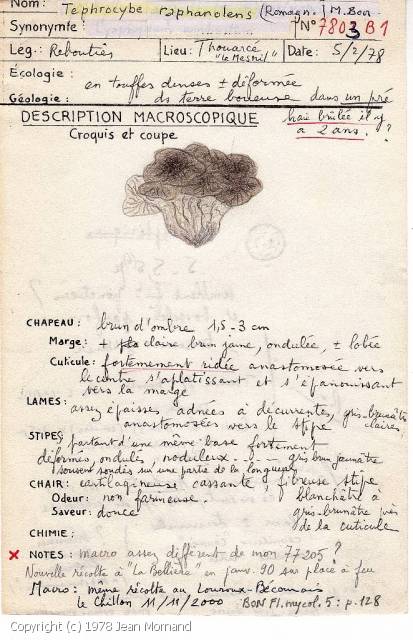 Nom: Tephrocybe raphanolens (Romagn.) M. Bon
Synonymie N° 7803 B1
Leg.: Rebouties Lieu: Thouarcé "Le Mesnil" Date: 5/2/78
Écologie:
en touffes denses ± déformée
Géologie: ds terre boueuse dans un pré
DESCRIPTION MACROSCOPIQUE haie brûlée il y
Croquis et coupe a 2 ans. ?
CHAPEAU: brun d'ombre 1,5-3 cm
Marge: + claire brun jaune, ondulée, ± lobée
Cuticule: fortement ridée anastomosée vers
le centre s'aplatissant et s'épanouissant
vers la marge
LAMES: assez épaisses, adnées à décurrentes, gris-brunâtre
anastomosées vers le stipe claires,
STIPES: partant d'une même base fortement
déformés, ondulés, noduleux - - - gris brun jaunâtre
souvent soudés sur une partie de la longueur
CHAIR: cartilagineuse cassante, fibreuse stipe
Odeur: non farineuse. blanchâtre à
Saveur: douce gris-brunâtre près
de la cuticule
CHIMIE:
x NOTES: macro assez différent de mon 77205 ?
Nouvelle récolte à "La Bellière" en janv. 90 sur place à feu
Macro: même récolte au Louroux-Béconnais
le Chillon 11/11/2000 BON Fl. mycol. 5: p. 128
Copyright (c) 1978 Jean Mornand